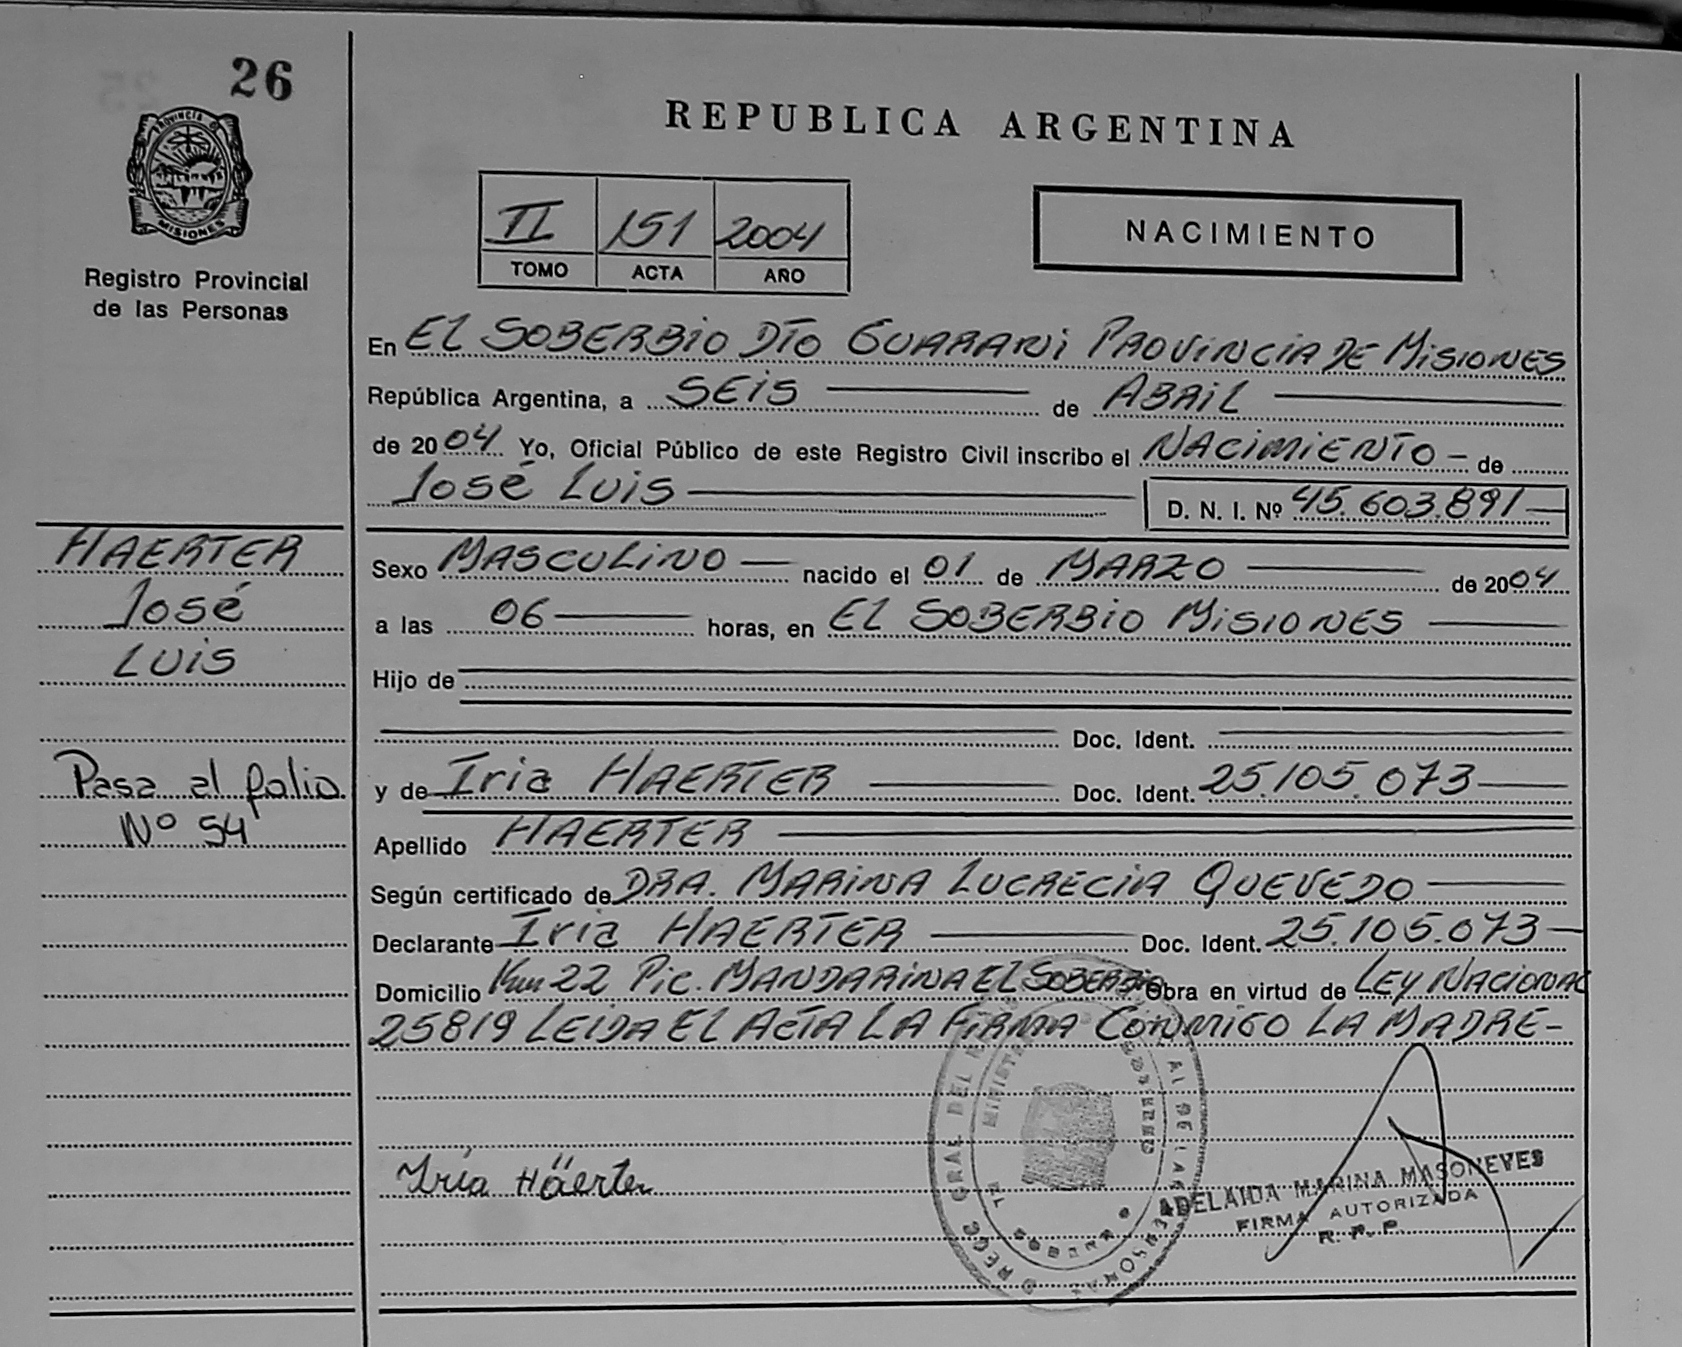 26
PROVINCIA DE
MISIONES
Registro Provincial
de las Personas
REPUBLICA ARGENTINA
II 151 2004
TOMO ACTA AÑO
NACIMIENTO
En EL SOBERBIO DTO GUARANI PROVINCIA DE MISIONES
República Argentina, a SEIS de ABRIL
de 2004 Yo, Oficial Público de este Registro Civil inscribo el NACIMIENTO - de
José LUIS D. N. I. Nº 45.603.891
HAERTER
José
LUIS
Sexo MASCULINO nacido el 01 de MARZO de 2004
a las 06 horas, en EL SOBERBIO MISIONES
Hijo de
Doc. Ident.
Pasa al folio
Nº 54
y de Iria HAERTER Doc. Ident. 25.105.073
Apellido HAERTER
Según certificado de DRA. MARINA LUCRECIA QUEVEDO
Declarante Iria HAERTER Doc. Ident. 25.105.073
Domicilio Km 22 Pic. MANDARINA EL SOBERBIO Obra en virtud de LEY NACIONAL
25819 LEIDA EL ACTA LA FIRMA CONMIGO LA MADRE-
Iria Häerter
ADELAIDA MARINA MASONEVES
FIRMA AUTORIZADA
R. P. P.